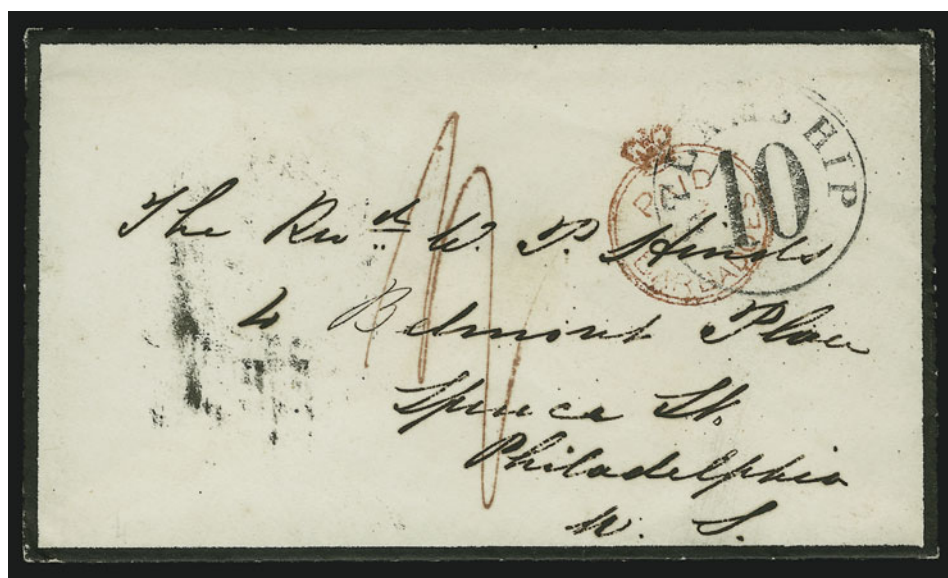 STEAMSHIP
10
PAID
BARBADOES
The Revd W. P. Hinds
4 Belmont Place
Spruce St.
Philadelphia
U. S.